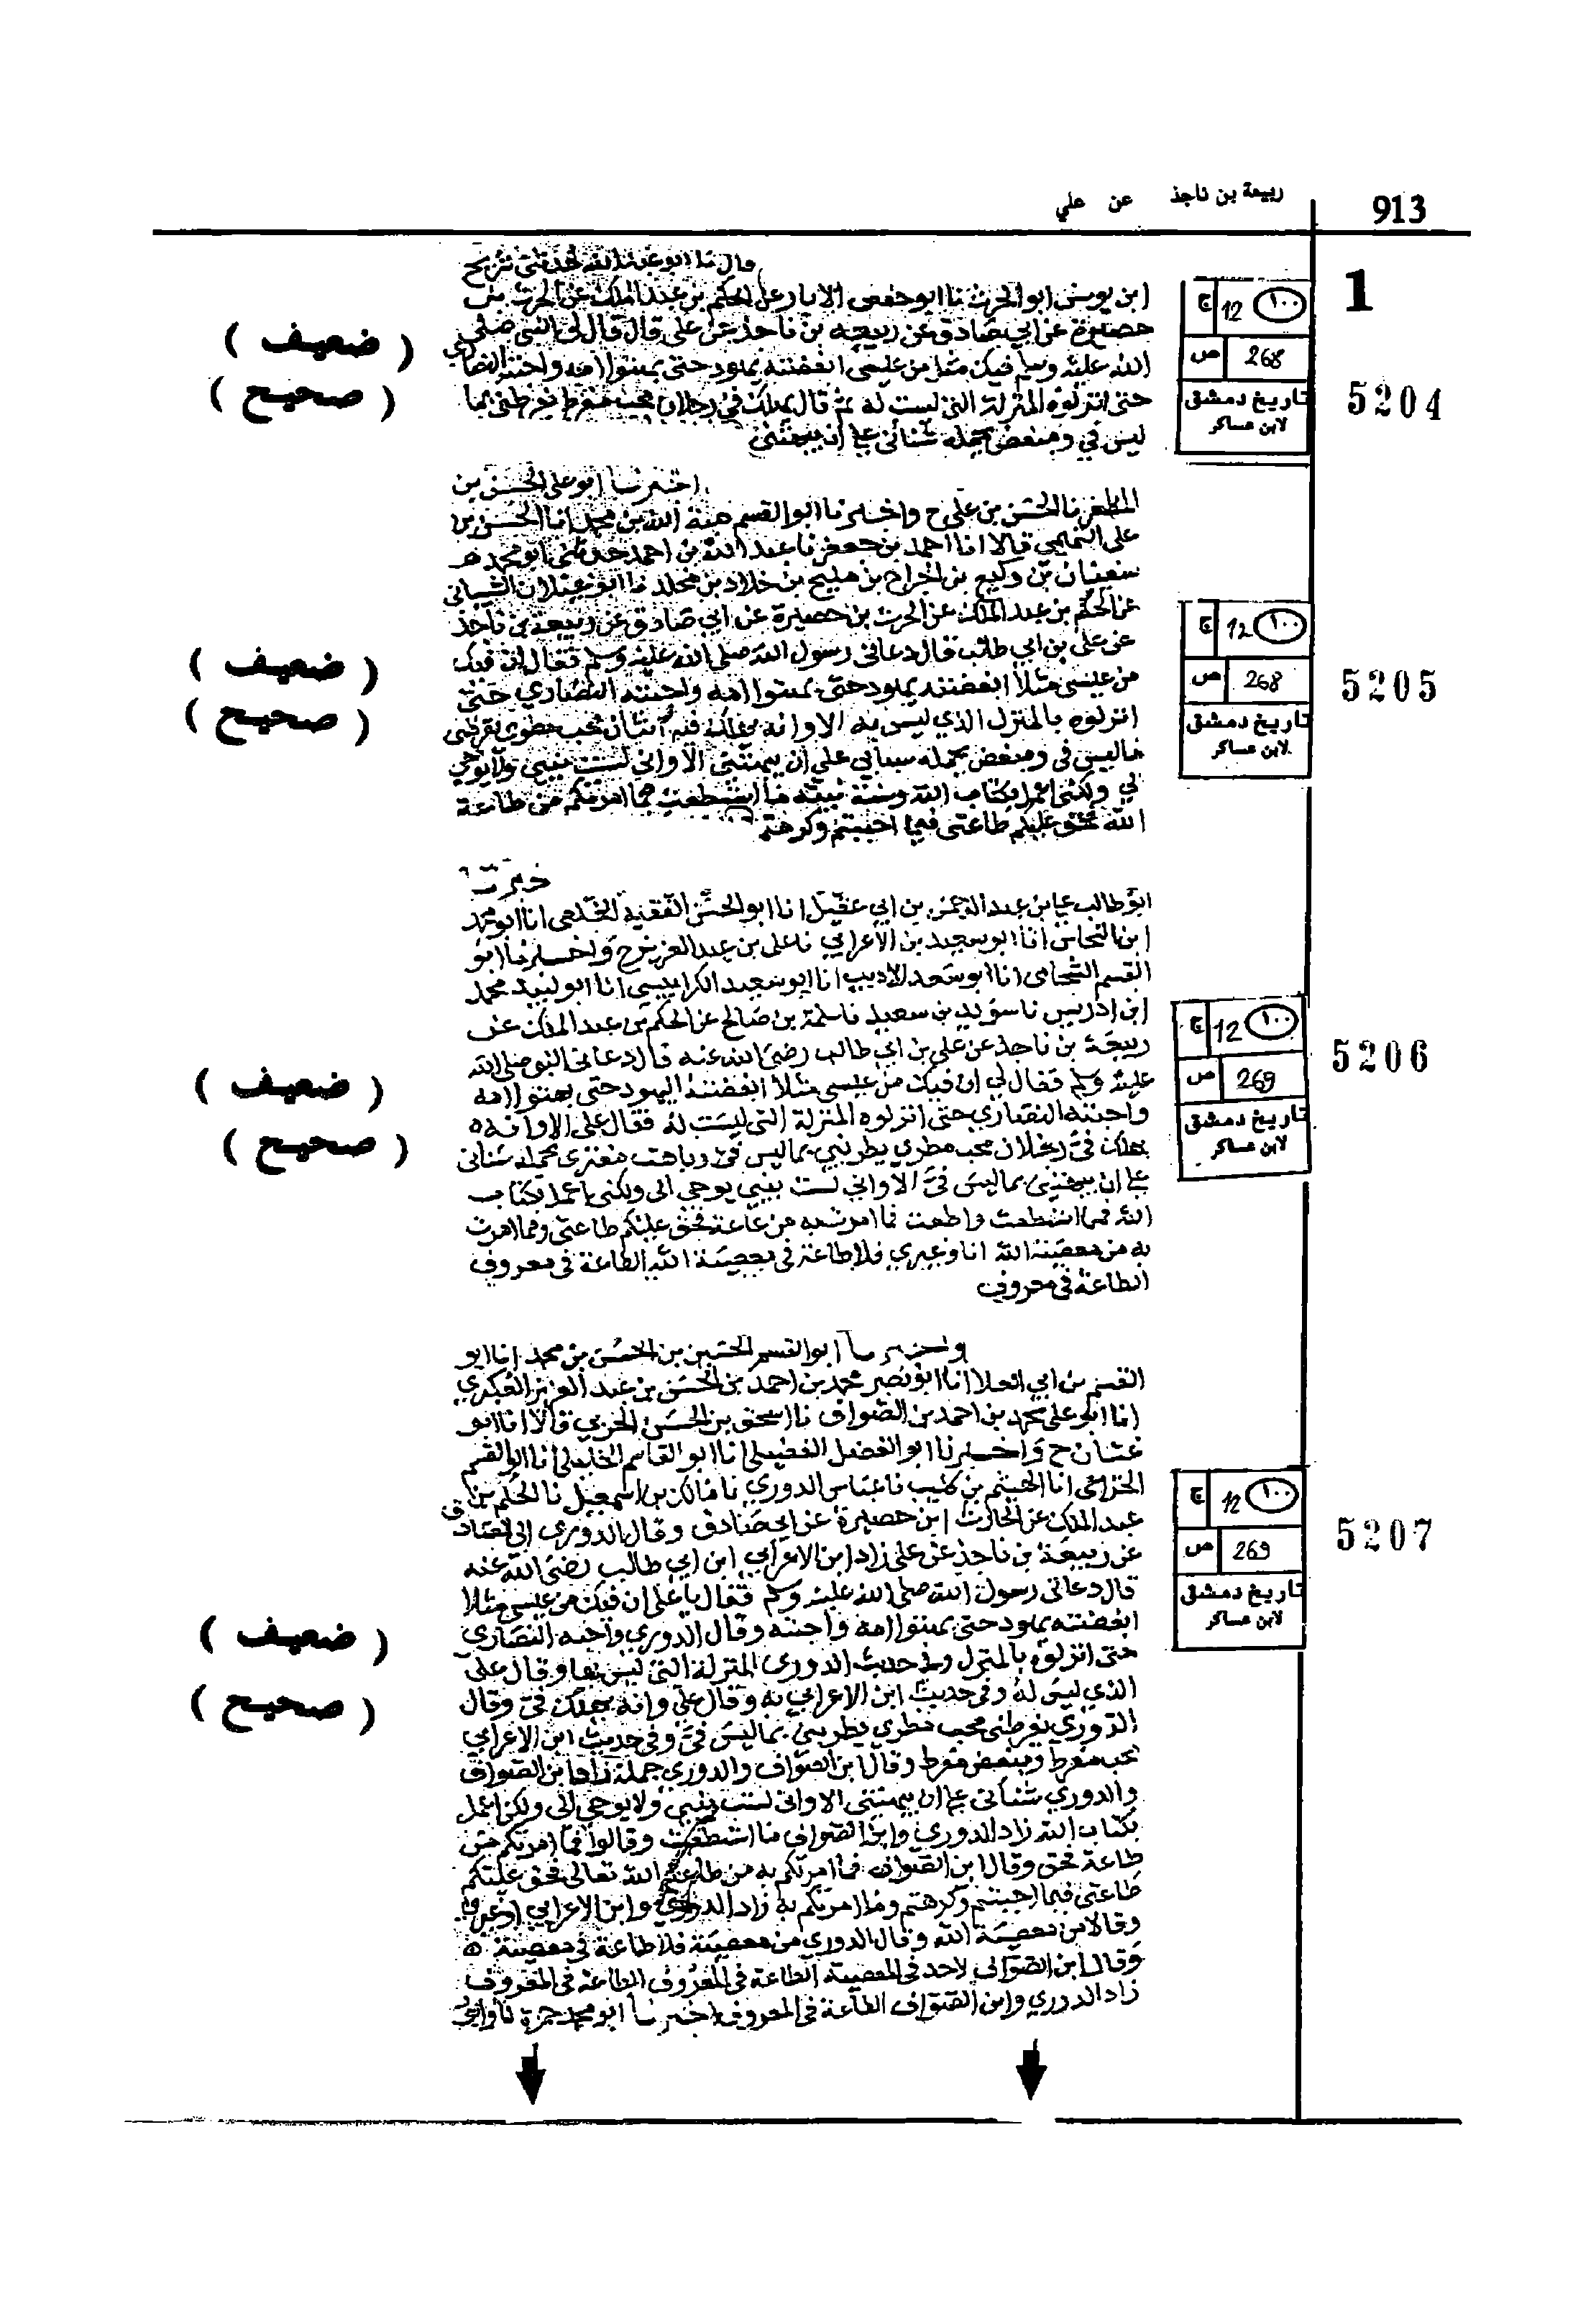 913
ربيعة بن ناجذ عن علي
1
ج 12 ١٠٠
ص 268
تاريخ دمشق
لابن عساكر
5204
( ضعيف )
( صحيح )
قال نا ابو عبد الله حدثني شريح
ابن يونس ابو الحرث نا ابو حفص الابار عن الحكم بن عبد الملك عن الحرث بن
حصيرة عن ابي صادق عن ربيعة بن ناجذ عن علي قال قال لي النبي صلى
الله عليه وسلم فيك مثل من عيسى ابغضته يهود حتى بهتوا امه واحبته النصارى
حتى انزلوه المنزلة التي ليست له ثم قال يهلك في رجلان محب مفرط يفرطني بما
ليس في ومبغض يحمله شنآني على ان يبهتني
ج 12 ١٠٠
ص 268
تاريخ دمشق
لابن عساكر
5205
( ضعيف )
( صحيح )
اخبرنا ابو علي الحسن بن
المظفر نا الحسن بن علي ح واخبرنا ابو القسم هبة الله بن محمد انا الحسن بن
علي التميمي قالا انا احمد بن جعفر نا عبد الله بن احمد حدثني ابو محمد
سفيان بن وكيع بن الجراح بن مليح بن خلاد بن مخلد نا ابو غيلان الشيباني
عن الحكم بن عبد الملك عن الحرث بن حصيرة عن ابي صادق عن ربيعة بن ناجذ
عن علي بن ابي طالب قال دعاني رسول الله صلى الله عليه وسلم فقال ان فيك
من عيسى مثلا ابغضته يهود حتى بهتوا امه واحبته النصارى حتى
انزلوه بالمنزل الذي ليس به الا وانه يهلك في اثنان محب يقرظني
بما ليس في ومبغض يحمله شنآني على ان يبهتني الا واني لست بنبي ولا يوحى
الي ولكني اعمل بكتاب الله وسنة نبيه ما استطعت فما امرتكم من طاعة
الله فحق عليكم طاعتي فيما احببتم وكرهتم
ج 12 ١٠٠
ص 269
تاريخ دمشق
لابن عساكر
5206
( ضعيف )
( صحيح )
خبرنا
ابو طالب علي بن عبد الرحمن بن ابي عقيل انا ابو الحسن الفقيه الخلعي انا ابو محمد
ابن النحاس انا ابو سعيد بن الاعرابي نا علي بن عبد العزيز ح واخبرنا ابو
القسم الشحامي انا ابو سعد الاديب انا ابو سعيد الكرابيسي انا ابو لبيد محمد
ابن ادريس نا سويد بن سعيد نا سلمة بن صالح عن الحكم بن عبد الملك عن
ربيعة بن ناجذ عن علي بن ابي طالب رضي الله عنه قال دعاني النبي صلى الله
عليه وسلم فقال لي ان فيك من عيسى مثلا ابغضته اليهود حتى بهتوا امه
واحبته النصارى حتى انزلوه المنزلة التي ليست له فقال علي الا وانه
يهلك في رجلان محب مطري يطريني بما ليس في وباهت مفتري يحمله شنآني
على ان يبهتني بما ليس في الا واني لست بنبي يوحى الي ولكني اعمل بكتاب
الله فما استطعت واطعت فما امرتكم به من طاعة فحق عليكم طاعتي وما امرت
به من معصية الله انا وغيري فلا طاعة في معصية الله الطاعة في معروف
الطاعة في معروف
ج 12 ١٠٠
ص 269
تاريخ دمشق
لابن عساكر
5207
( ضعيف )
( صحيح )
واخبرنا ابو القسم الحسين بن الحسن بن محمد انا ابو
القسم بن ابي العلا انا ابو نصر محمد بن احمد بن الحسن بن عبد العزيز العكبري
انا ابو علي محمد بن احمد بن الصواف نا اسحق بن الحسن الحربي قالا انا ابو
غسان ح واخبرنا ابو الفضل الفضيلي انا ابو القاسم الخليلي انا ابو القسم
الخزاعي انا الهيثم بن كليب نا عباس الدوري نا مالك بن اسمعيل نا الحكم بن
عبد الملك عن الحارث ابن حصيرة عن ابي صادق وقال الدوري الى الصادق
عن ربيعة بن ناجذ عن علي زاد ابن الاعرابي ابن ابي طالب رضي الله عنه
قال دعاني رسول الله صلى الله عليه وسلم فقال يا علي ان فيك من عيسى مثلا
ابغضته يهود حتى بهتوا امه واحبته وقال الدوري واحبه النصارى
حتى انزلوه بالمنزل وفي حديث الدوري المنزلة التي ليس بها وقال علي
الذي ليس له وفي حديث ابن الاعرابي به وقال علي وانه يهلك في وقال
الدوري يفرطني محب مطري يطريني بما ليس في وفي حديث ابن الاعرابي
محب مفرط ومبغض مفرط وقال ابن الصواف والدوري يحمله زاد ابن الصواف
والدوري شنآني على ان يبهتني الا واني لست بنبي ولا يوحى الي ولكن اعمل
بكتاب الله زاد الدوري وابن الصواف ما استطعت وقالوا فما امرتكم من
طاعة فحق وقال ابن الصواف فما امرتكم به من طاعة الله تعالى فحق عليكم
طاعتي فيما احببتم وكرهتم وما امرتكم به زاد الدوري وابن الاعرابي او غيري
وقالا من معصية الله وقال الدوري من معصية فلا طاعة في معصية
وقال ابن الصواف لاحد في المعصية الطاعة في المعروف الطاعة في المعروف
زاد الدوري وابن الصواف الطاعة في المعروف اخبرنا ابو محمد حمزة